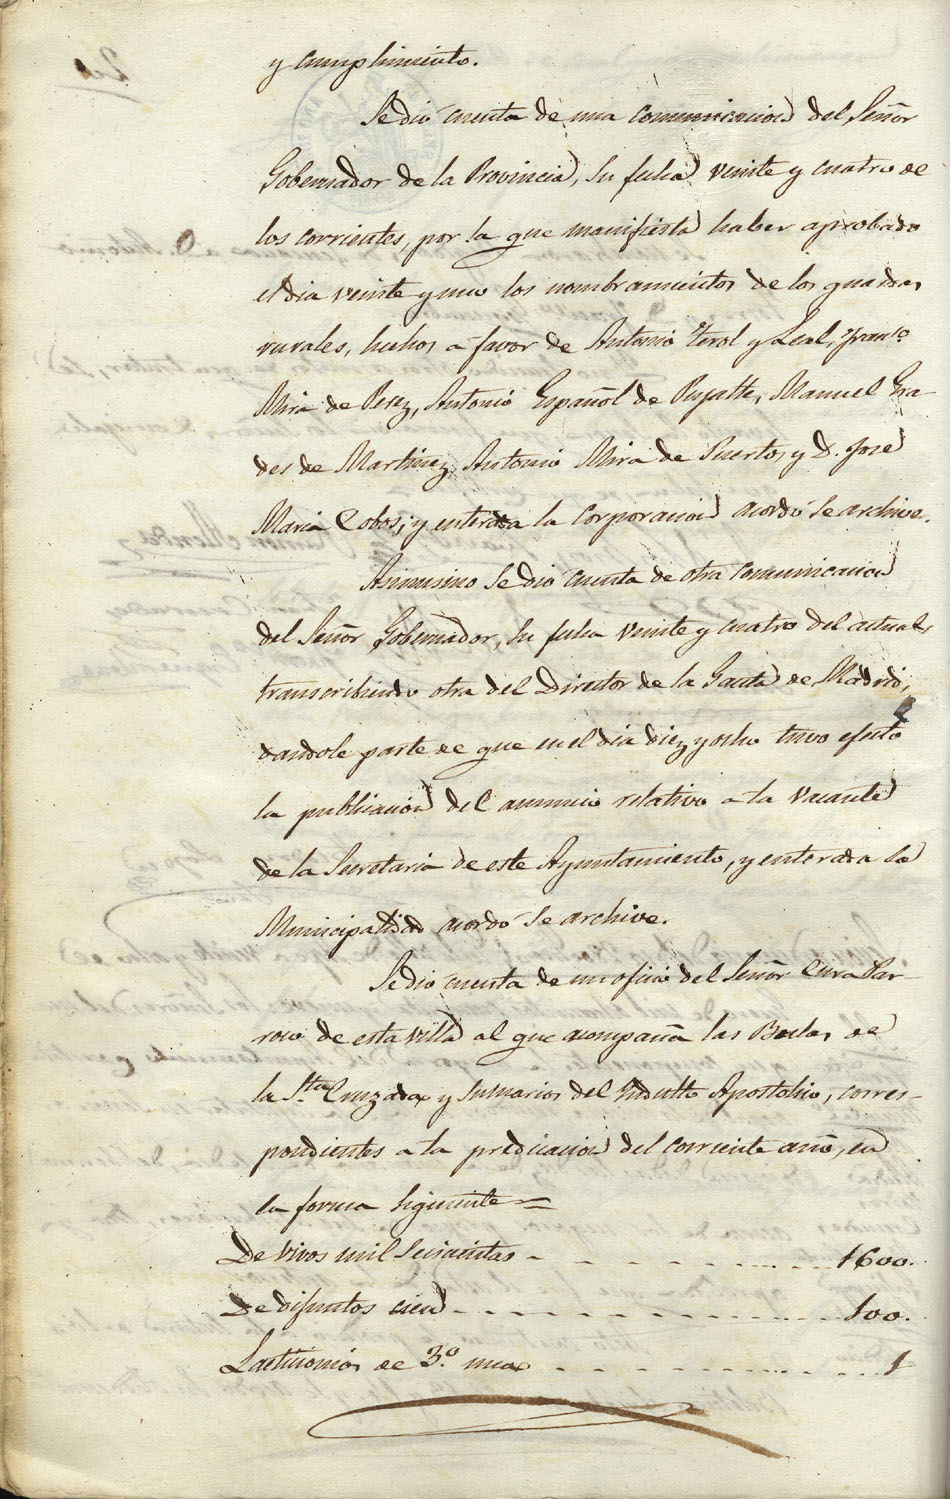 y cumplimiento.
Se dió cuenta de una comunicacion del Señor
Gobernador de la Provincia, su fecha veinte y cuatro de
los corrientes, por la que manifiesta haber aprobado
el dia veinte y uno los nombramientos de los guardas
rurales, hechos a favor de Antonio Terol y Leal, Franco
Mira de Perez, Antonio Español de Pujalte, Manuel Gra-
des de Martinez, Antonio Mira de Puerto, y D. José
Maria Cobos; y enterada la corporacion acordó se archive.
Asimismo se dió cuenta de otra comunicacion
del Señor Gobernador, su fecha veinte y cuatro del actual,
transcribiendo otra del Director de la Gaceta de Madrid,
dandole parte de que en el dia diez y ocho tuvo efecto
la publicacion del anuncio relativo a la vacante
de la Secretaria de este Ayuntamiento, y enterada la
Municipalidad acordó se archive.
Se dió cuenta de un oficio del Señor Cura Par-
roco de esta villa al que acompaña las Bulas de
la Sta Cruzada y sumarios del Indulto Apostolico, corres-
pondientes a la predicacion del corriente año, en
la forma siguiente=
De vivos mil seiscientas - - - - - - - - 1600.
De difuntos cien - - - - - - - - 100.
Lacticinios de 3ª una - - - - - - - - 1